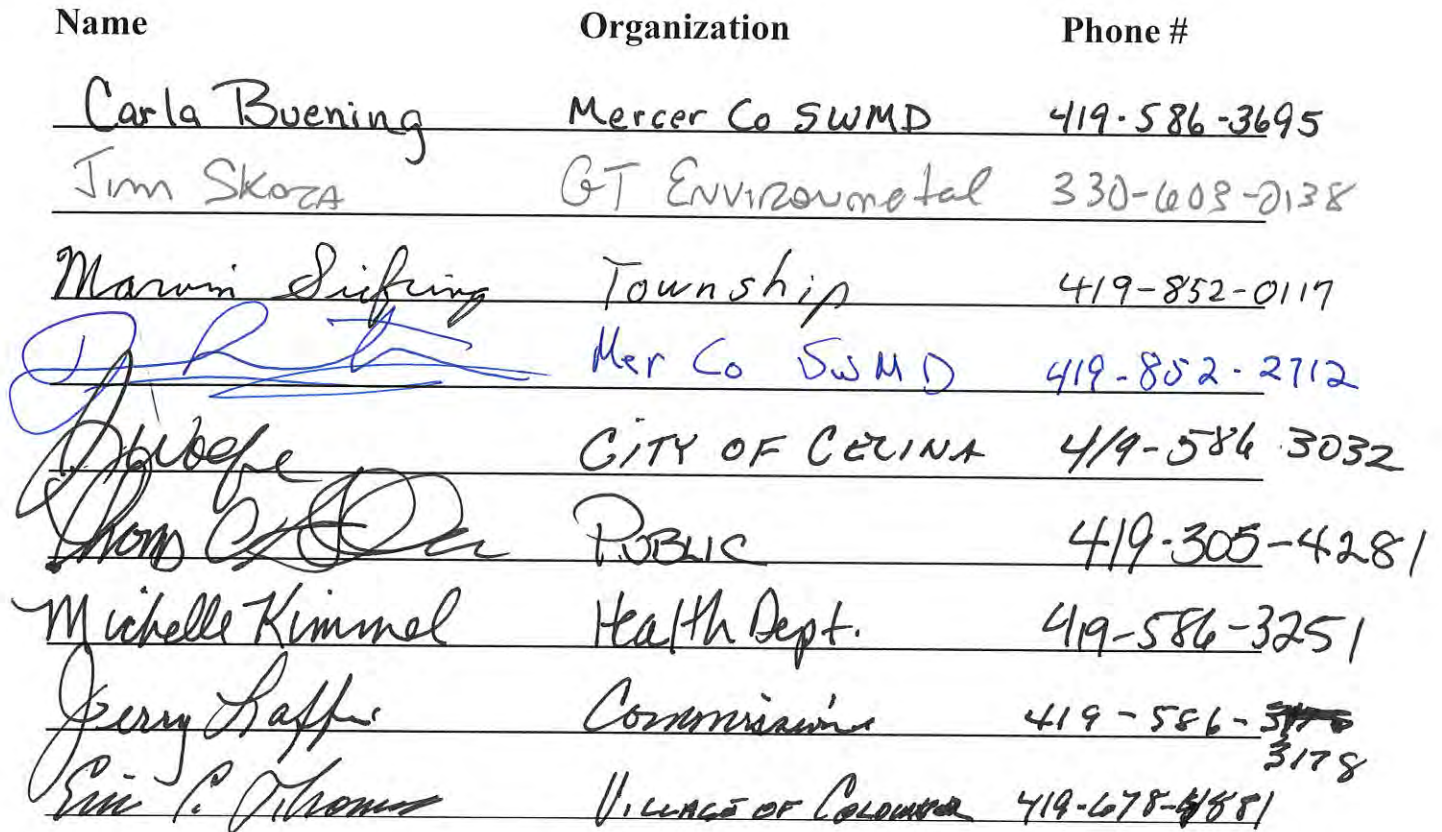 Name Organization Phone #
Carla Buening Mercer Co SWMD 419-586-3695
Jim Skora GT Environmetal 330-603-0138
Marvin Siefring Township 419-852-0117
Mer Co SWMD 419-852-2712
CITY OF CELINA 419-586 3032
Thom PUBLIC 419-305-4281
Michelle Kimmel Health Dept. 419-586-3251
Jerry Laffin 419-586-
3178
Eric C. Thomas VILLAGE OF Coldwater